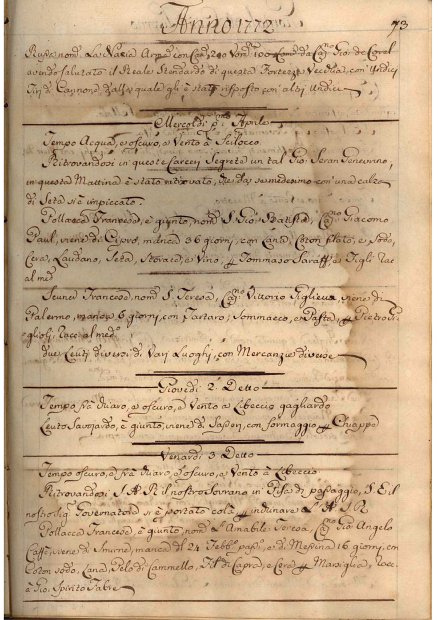 Anno 1772
73
Russa nom.ᵃ La Nasia Arm.ᵃ con Can. 240 Uom. 100 Com.ᵈᵃ da Cap.ⁿᵒ Gio. de
avendo salutato il Reale Stendardo di questa Fortezza Vecchia, con Undici
Tiri di Cannone, dalla quale gli è stato risposto con altri Undici
Mercoldì p.ᵐᵒ Aprile
Tempo Acqua, e oscuro, e Vento a Scilocco
Ritrovandosi in queste Carceri Segrete un tal Gio. Genevrino,
in questa Mattina è stato ritrovato, che da se medesimo con una calza
di Seta si è impiccato
Pollacca Franzesa, è giunto, nom.ᵃ S. Gio. Battista, Cap.ⁿᵒ Giacomo
Paul, viene di Cipro, manca 36 giorni, con Lana, Coton filato, e Sodo,
Cera, Laudano, Seta, Storace, e Vino, p Tommaso Saraff, e Figli rac.
al med.
Scuna Francese, nom.ᵃ S. Teresa, Cap.ⁿᵒ Vittorio viene di
Palermo, manca 6 giorni, con Tartaro, Sommacco, e Pasta, p Pietro
racc. al med.ᵒ
due Leuti diversi di Varj Luoghi, con Mercanzie diverse
Giovedì 2 Detto
Tempo fra chiaro, e oscuro, e Vento a Libeccio gagliardo
Leuto Savojardo, è giunto, viene di con formaggio p Chiappe
Venardì 3 Detto
Tempo oscuro, e fra chiaro, e oscuro, e Vento a Libeccio
Ritrovandosi S. A. R. il nostro Sovrano in Pisa di passaggio, S. E. il
nostro Sig. Governatore si è portato colà p inchinare L'A. S. R.
Pollacca Francesa, è giunto, nom.ᵃ L'Amabile Teresa, Cap.ⁿᵒ Gio. Angelo
viene di Smirne, manca dl 24 Febb.º pas.º, e da Messina 16 giorni, con
Coton Sodo, Lana, Pelo di Cammello, di Capra, e Cera p Marsiglia, racc.
a Gio. Spirito Fabre